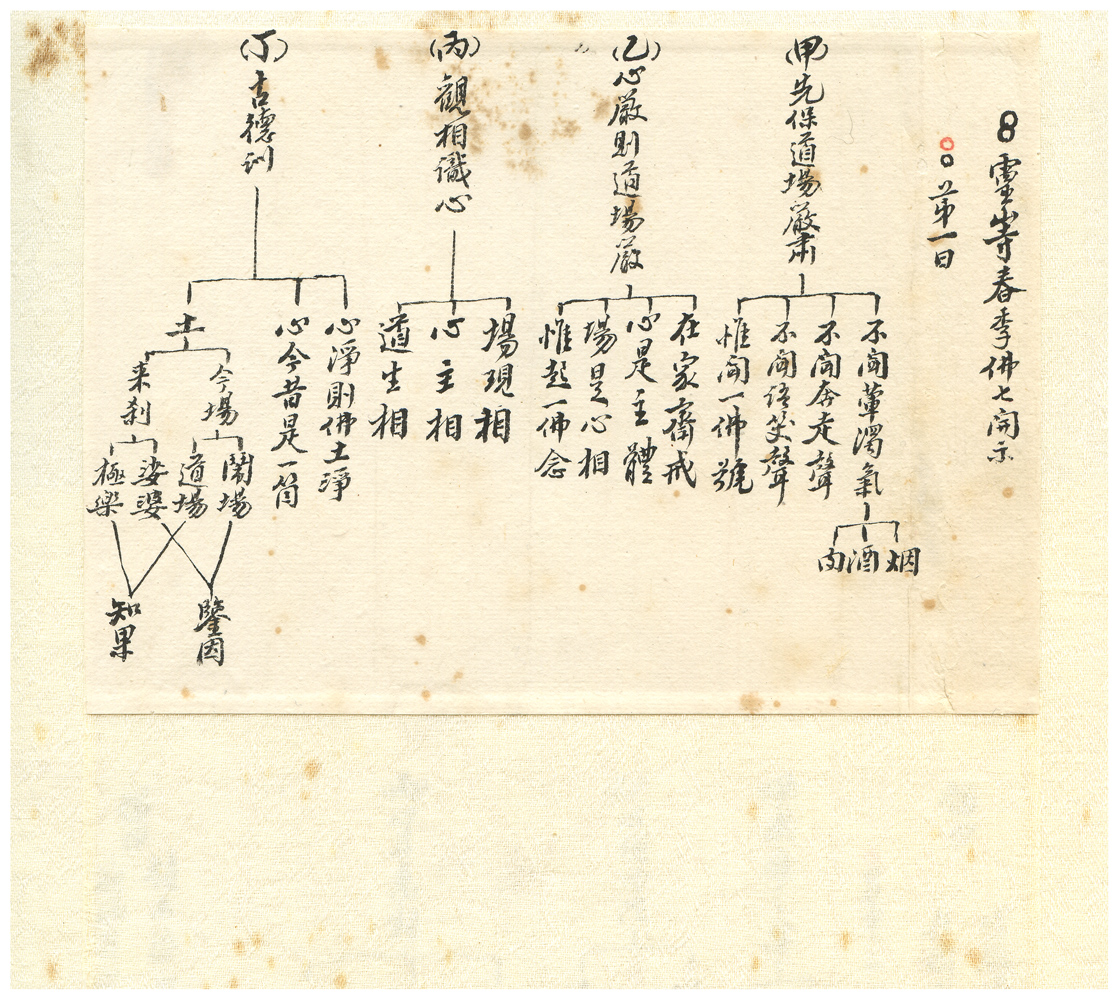 8 靈嵓寺春季佛七開示
第一日
(甲)先保道場嚴肅
不聞葷濁氣
烟
酒
肉
不聞奔走聲
不聞語笑聲
惟聞一佛號
(乙)心嚴則道場嚴
在家齋戒
心是主體
場是心相
惟起一佛念
(丙)觀相識心
場現相
心主相
道生相
(丁)古德訓
心淨則佛土淨
心今昔是一箇
土
今場
鬧場
道場
来刹
娑婆
極樂
鑒因
知果